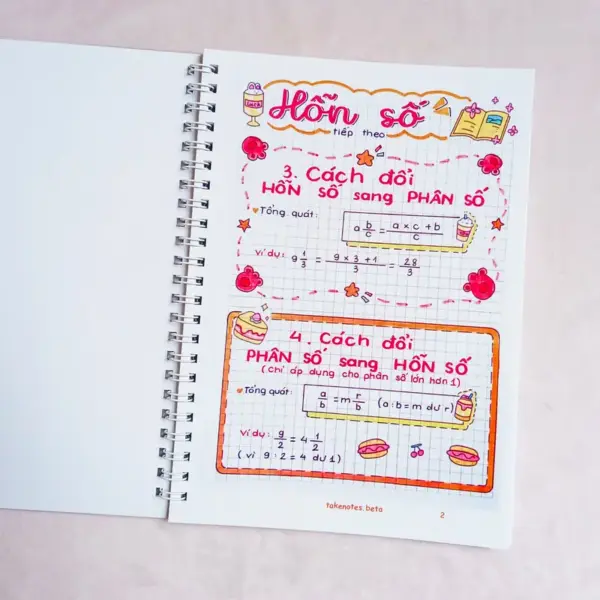 Hỗn số
tiếp theo
3. Cách đổi
HỖN SỐ sang PHÂN SỐ
Tổng quát:
a b/c = a x c + b / c
Ví dụ: 9 1/3 = 9 x 3 + 1 / 3 = 28/3
4. Cách đổi
PHÂN SỐ sang HỖN SỐ
(chỉ áp dụng cho phân số lớn hơn 1)
Tổng quát:
a/b = m r/b (a : b = m dư r)
Ví dụ: 9/2 = 4 1/2
(vì 9 : 2 = 4 dư 1)
takenotes.beta
2